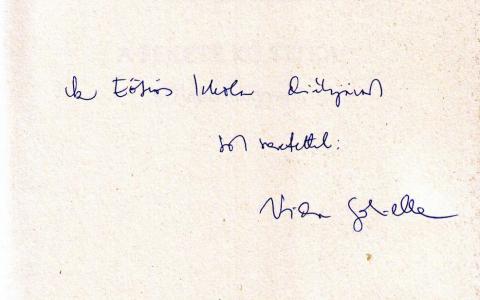 Az Eötvös Iskola diákjainak
sok szeretettel:
Vida Gabriella